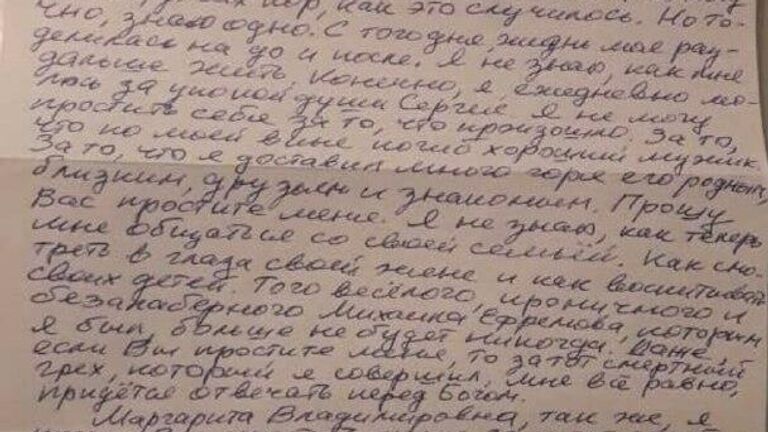 сих пор, как это случилось. Но то-
чно, знаю одно. С того дня, жизнь моя раз-
делилась на до и после. Я не знаю, как мне
дальше жить. Конечно, я, ежедневно мо-
люсь за упокой души Сергея. Я не могу
простить себе за то, что произошло. За то,
что по моей вине погиб хороший мужик.
За то, что я доставил много горя его родным,
близким, друзьям и знакомым. Прошу
Вас простите меня. Я не знаю, как теперь
мне общаться со своей семьёй. Как смо-
треть в глаза своей жене и как воспитывать
своих детей. Того весёлого, ироничного и
безалаберного Михаила Ефремова, которым
я был, больше не будет никогда. Даже,
если Вы простите меня, то за тот смертный
грех, который я совершил, мне всё равно,
придётся отвечать перед Богом.
Маргарита Владимировна, так же, я